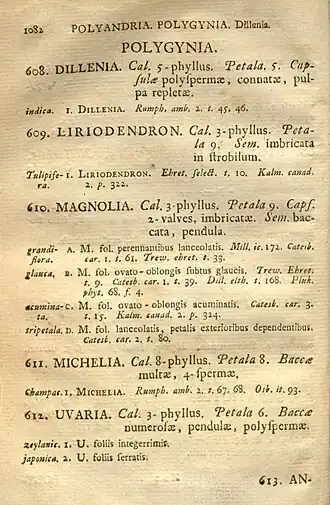 1082 POLYANDRIA. POLYGYNIA. Dillenia.
POLYGYNIA.
608. DILLENIA. Cal. 5-phyllus. Petala 5. Cap-
sulæ polyspermæ, connatæ, pul-
pa repletæ.
indica. 1. DILLENIA. Rumph. amb. 2. t. 45. 46.
609. LIRIODENDRON. Cal. 3-phyllus. Peta-
la 9. Sem. imbricata
in strobilum.
Tulipife- 1. LIRIODENDRON. Ehret. select. t. 10. Kalm. canad.
ra. 2. p. 322.
610. MAGNOLIA. Cal. 3-phyllus. Petala 9. Caps.
2-valves, imbricatæ. Sem. bac-
cata, pendula.
grandi- A. M. fol. perennantibus lanceolatis. Mill. ic. 172. Catesb.
flora. car. 1. t. 61. Trew. ehret. t. 33.
glauca. B. M. fol. ovato-oblongis subtus glaucis. Trew. Ehret.
t. 9. Catesb. car. 1. t. 39. Dill. elth. t. 168. Pluk.
phyt. 68. f. 4.
acumina- C. M. fol. ovato-oblongis acuminatis. Catesb. car. 3.
ta. t. 15. Kalm. canad. 2. p. 324.
tripetala. D. M. fol. lanceolatis, petalis exterioribus dependentibus.
Catesb. car. 2. t. 80.
611. MICHELIA. Cal. 8-phyllus. Petala 8. Baccæ
multæ, 4-spermæ.
Champac. 1. MICHELIA. Rumph. amb. 2. t. 67. 68. Osb. it. 93.
612. UVARIA. Cal. 3-phyllus. Petala 6. Baccæ
numerosæ, pendulæ, polyspermæ.
zeylanic. 1. U. foliis integerrimis.
japonica. 2. U. foliis serratis.
613. AN-